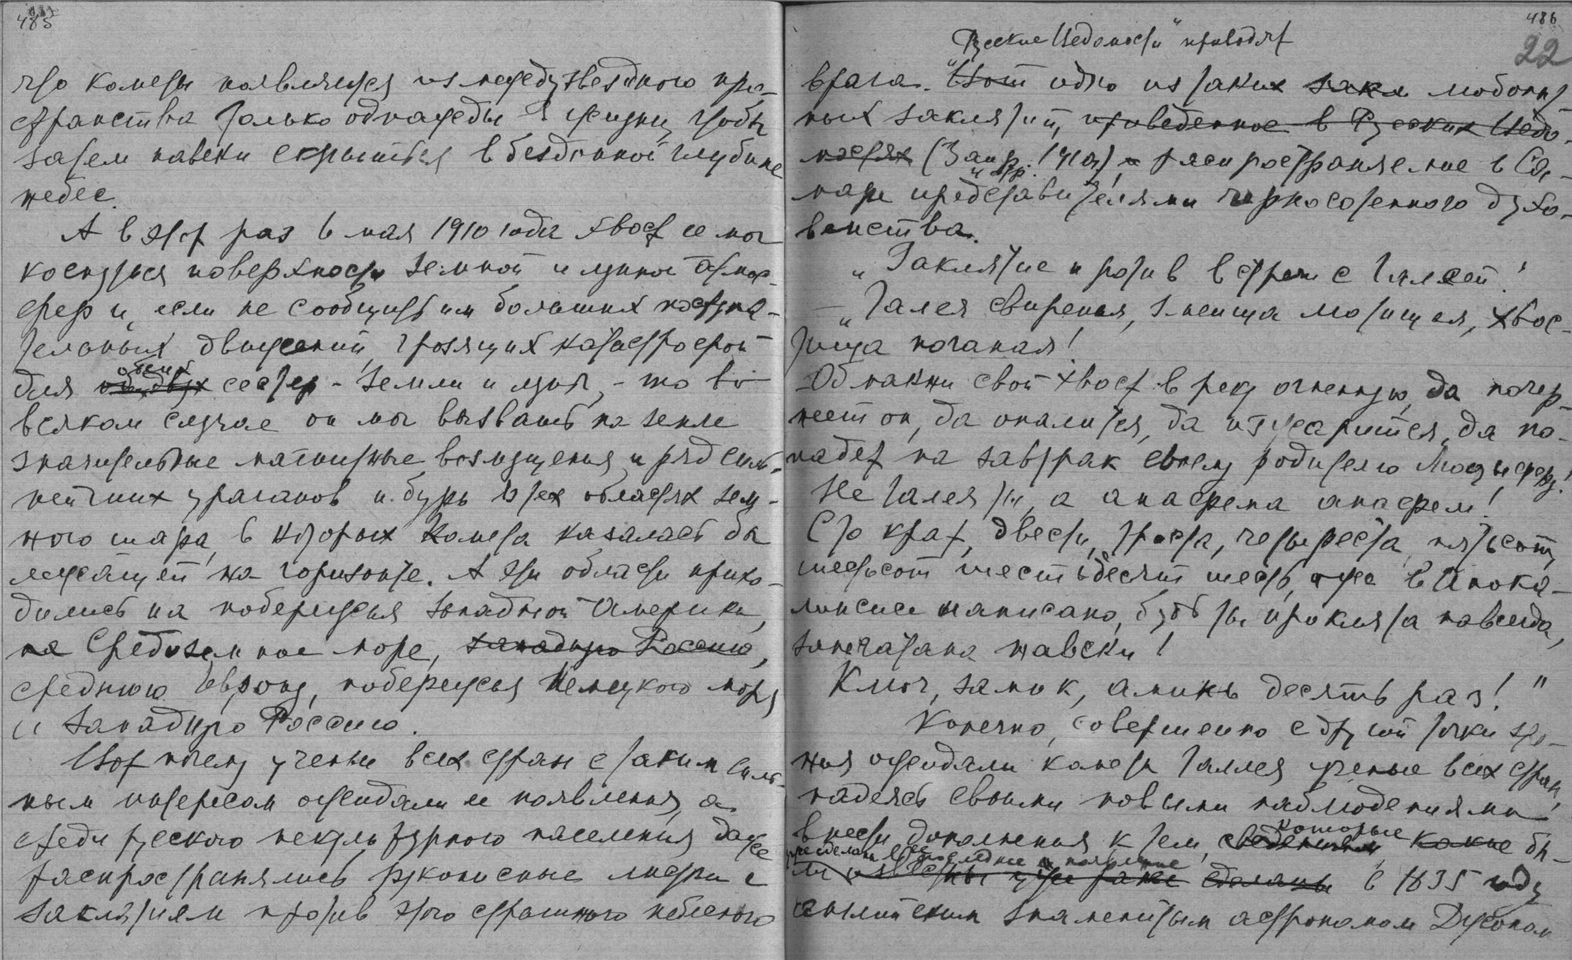 485
что кометы появляются из междузвездного про-
странства только однажды в жизни, чтобы
затем навеки скрыться в бездонной глубине
небес.
А в этот раз 6 мая 1910 года хвост ее мог
коснуться поверхности земной и лунной атмос-
фер и, если не сообщить им больших поступа-
тельных движений, грозящих катастрофой
для обеих сестер - Земли и луны, - то во
всяком случае он мог вызвать на земле
значительные магнитные возмущения и ряд силь-
нейших ураганов и бурь в тех областях зем-
ного шара, в которых комета казалась бы
лежащей на горизонте. А эти области прихо-
дились на побережья западной Америки,
на Средиземное море, западную Россию,
среднюю Европу, побережья Немецкого моря
и западную Россию.
Вот почему ученые всех стран с таким силь-
ным интересом ожидали ее появления, а
среди русского некультурного населения даже
распространялись рукописные листки с
заклятиями против этого страшного небесного
486
22
"Русские Ведомости" приводят
врага. Вот одно из таких таки любопыт-
ных заклятий, приведенное в Русских Ведо-
мостях (3 апр. 1910), распространяемое в Са-
маре представителями черносотенного духо-
венства.
"Заклятие против встречи с Галлеей!
— "Галея свирепая, змеища мотищая, хвос-
тища поганая!
Обмакни свой хвост в реку огненную, да почер-
неет он, да опалится, да изжарится, да по-
падет на завтрак своему родителю Люциферу!
Не Галея ты, а анафема анафем!
Сто крат, двести, триста, четыреста, пятьсот,
шестьсот шестьдесят шесть, как в Апока-
липсисе написано, будь ты проклята навсегда,
запечатана навеки!
Ключ, замок, аминь десять раз!"
Конечно, совершенно с другой точки зре-
ния ожидали кометы Галлея ученые всех стран,
надеясь своими новыми наблюдениями
внести дополнения к тем, сведениям которые какие бы-
ли сделаны в последнее ее появление в 1835 году
английским знаменитым астрономом Джоном